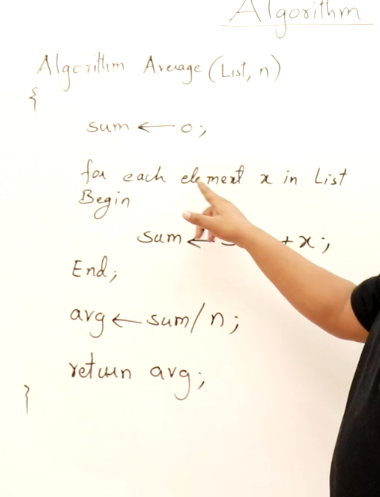 Algorithm
Algorithm Average (List, n)
{
sum ← 0;
for each element x in List
Begin
sum ← + x;
End;
avg ← sum / n;
return avg;
}